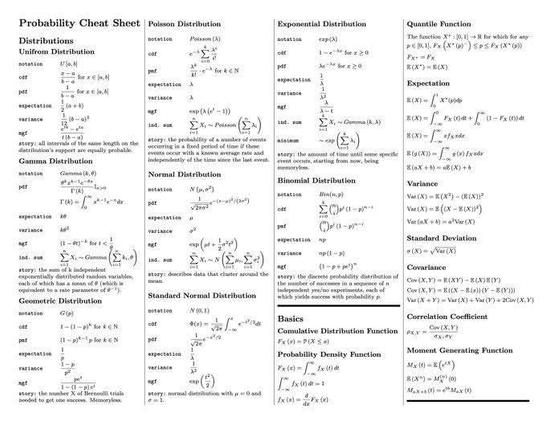 Probability Cheat Sheet
Distributions
Unifrom Distribution
notation U[a, b]
cdf (x − a)/(b − a) for x ∈ [a, b]
pdf 1/(b − a) for x ∈ [a, b]
expectation 1/2 (a + b)
variance 1/12 (b − a)²
mgf (e^{tb} − e^{ta})/(t (b − a))
story: all intervals of the same length on the
distribution's support are equally probable.
Gamma Distribution
notation Gamma (k, θ)
pdf
Γ (k) = ∫₀^∞ x^{k−1} e^{−x} dx
expectation kθ
variance kθ²
mgf (1 − θt)^{−k} for t < 1/θ
ind. sum ∑_{i=1}^n X_i ∼ Gamma (∑_{i=1}^n k_i, θ)
story: the sum of k independent
exponentially distributed random variables,
each of which has a mean of θ (which is
equivalent to a rate parameter of θ^{−1}).
Geometric Distribution
notation G (p)
cdf 1 − (1 − p)^k for k ∈ ℕ
pmf (1 − p)^{k−1} p for k ∈ ℕ
expectation 1/p
variance (1 − p)/p²
mgf pe^t/(1 − (1 − p) e^t)
story: the number X of Bernoulli trials
needed to get one success. Memoryless.
Poisson Distribution
notation Poisson (λ)
cdf e^{−λ} ∑_{i=0}^k λ^i/i!
pmf λ^k/k! · e^{−λ} for k ∈ ℕ
expectation λ
variance λ
mgf exp (λ (e^t − 1))
ind. sum ∑_{i=1}^n X_i ∼ Poisson (∑_{i=1}^n λ_i)
story: the probability of a number of events
occurring in a fixed period of time if these
events occur with a known average rate and
independently of the time since the last event.
Normal Distribution
notation N (μ, σ²)
pdf 1/√(2πσ²) e^{−(x−μ)²/(2σ²)}
expectation μ
variance σ²
mgf exp (μt + 1/2 σ²t²)
ind. sum ∑_{i=1}^n X_i ∼ N (∑_{i=1}^n μ_i, ∑_{i=1}^n σ_i²)
story: describes data that cluster around the
mean.
Standard Normal Distribution
notation N (0, 1)
cdf Φ (x) = 1/√(2π) ∫_{−∞}^x e^{−t²/2} dt
pdf 1/√(2π) e^{−x²/2}
expectation 1/λ
variance 1/λ²
mgf exp (t²/2)
story: normal distribution with μ = 0 and
σ = 1.
Exponential Distribution
notation exp (λ)
cdf 1 − e^{−λx} for x ≥ 0
pdf λe^{−λx} for x ≥ 0
expectation 1/λ
variance 1/λ²
mgf λ/(λ − t)
ind. sum ∑_{i=1}^k X_i ∼ Gamma (k, λ)
minimum ∼ exp (∑_{i=1}^k λ_i)
story: the amount of time until some specific
event occurs, starting from now, being
memoryless.
Binomial Distribution
notation Bin(n, p)
cdf ∑_{i=0}^k (n i) p^i (1 − p)^{n−i}
pmf (n i) p^i (1 − p)^{n−i}
expectation np
variance np (1 − p)
mgf (1 − p + pe^t)^n
story: the discrete probability distribution of
the number of successes in a sequence of n
independent yes/no experiments, each of
which yields success with probability p.
Basics
Comulative Distribution Function
F_X (x) = ℙ (X ≤ x)
Probability Density Function
F_X (x) = ∫_{−∞}^∞ f_X (t) dt
∫_{−∞}^∞ f_X (t) dt = 1
f_X (x) = d/dx F_X (x)
Quantile Function
The function X* : [0, 1] → ℝ for which for any
p ∈ [0, 1], F_X (X* (p)⁻) ≤ p ≤ F_X (X* (p))
F_{X*} = F_X
𝔼 (X*) = 𝔼 (X)
Expectation
𝔼 (X) = ∫₀¹ X*(p)dp
𝔼 (X) = ∫_{−∞}^0 F_X (t) dt + ∫_0^∞ (1 − F_X (t)) dt
𝔼 (X) = ∫_{−∞}^∞ x f_X x dx
𝔼 (g (X)) = ∫_{−∞}^∞ g (x) f_X x dx
𝔼 (aX + b) = a𝔼 (X) + b
Variance
Var (X) = 𝔼 (X²) − (𝔼 (X))²
Var (X) = 𝔼 ((X − 𝔼 (X))²)
Var (aX + b) = a²Var (X)
Standard Deviation
σ (X) = √Var (X)
Covariance
Cov (X, Y) = 𝔼 (XY) − 𝔼 (X) 𝔼 (Y)
Cov (X, Y) = 𝔼 ((X − 𝔼 (x)) (Y − 𝔼 (Y)))
Var (X + Y) = Var (X) + Var (Y) + 2Cov (X, Y)
Correlation Coefficient
ρ_{X,Y} = Cov (X, Y)/(σ_X, σ_Y)
Moment Generating Function
M_X (t) = 𝔼 (e^{tX})
𝔼 (X^n) = M_X^{(n)} (0)
M_{aX+b} (t) = e^{tb} M_{aX} (t)